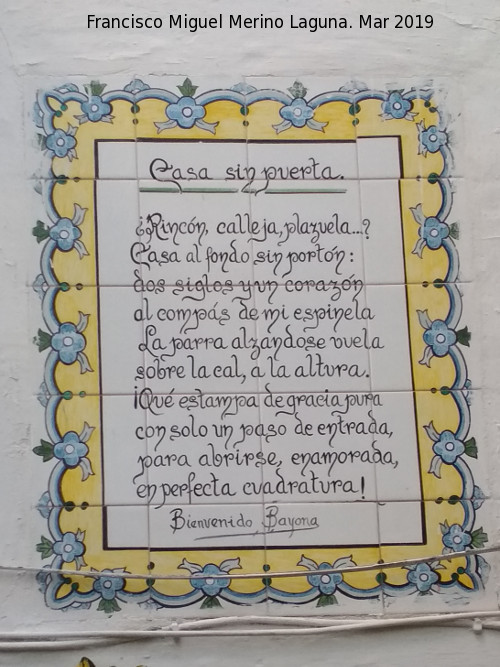 Francisco Miguel Merino Laguna. Mar 2019
Casa sin puerta.
¿Rincón, calleja, plazuela...?
Casa al fondo sin portón:
dos siglos y un corazón
al compás de mi espinela
La parra alzandose vuela
sobre la cal, a la altura.
¡Qué estampa de gracia pura
con solo un paso de entrada,
para abrirse, enamorada,
en perfecta cuadratura!
Bienvenido Bayona